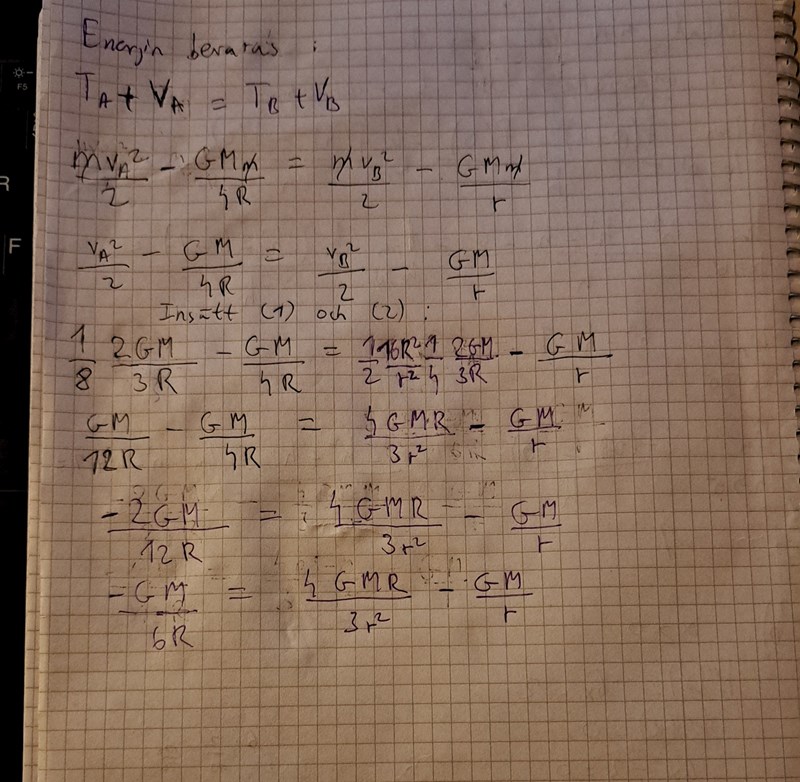 Energin bevaras :
T_A + V_A = T_B + V_B
m v_A²/2 - GMm/4R = m v_B²/2 - GMm/r
v_A²/2 - GM/4R = v_B²/2 - GM/r
Insätt (1) och (2) :
1/8 2GM/3R - GM/4R = 1/2 16R²/r² 1/4 2GM/3R - GM/r
GM/12R - GM/4R = 4GMR/3r² - GM/r
-2GM/12R = 4GMR/3r² - GM/r
-GM/6R = 4GMR/3r² - GM/r
F5
R
F